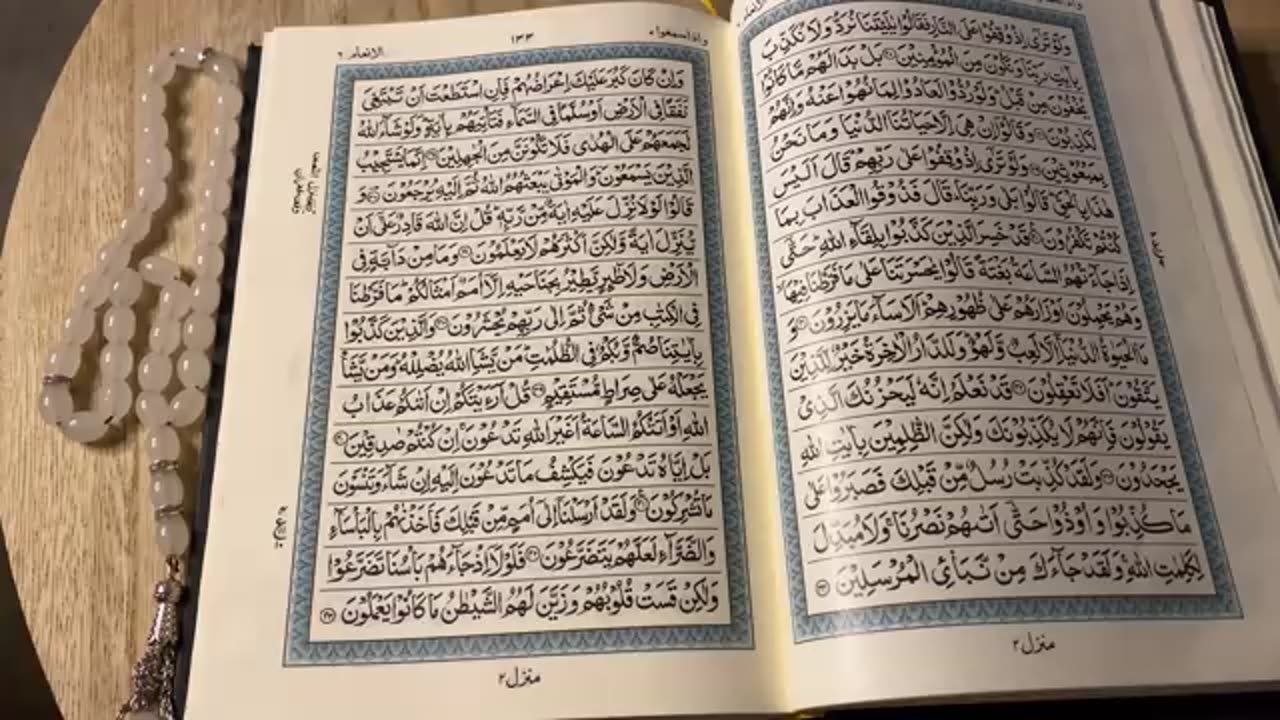 وَلَوْ تَرٰٓى اِذْ وُقِفُوْا عَلَى النَّارِ فَقَالُوْا يٰلَيْتَنَا نُرَدُّ وَلَا نُكَذِّبَ
بِاٰيٰتِ رَبِّنَا وَنَكُوْنَ مِنَ الْمُؤْمِنِيْنَ ۝ بَلْ بَدَا لَهُمْ مَّا كَانُوْا
يُخْفُوْنَ مِنْ قَبْلُ ؕ وَلَوْ رُدُّوْا لَعَادُوْا لِمَا نُهُوْا عَنْهُ وَاِنَّهُمْ
لَكٰذِبُوْنَ ۝ وَقَالُوْٓا اِنْ هِىَ اِلَّا حَيَاتُنَا الدُّنْيَا وَمَا نَحْنُ
بِمَبْعُوْثِيْنَ ۝ وَلَوْ تَرٰٓى اِذْ وُقِفُوْا عَلٰى رَبِّهِمْ ؕ قَالَ اَلَيْسَ
هٰذَا بِالْحَقِّ ؕ قَالُوْا بَلٰى وَرَبِّنَا ؕ قَالَ فَذُوْقُوا الْعَذَابَ بِمَا
كُنْتُمْ تَكْفُرُوْنَ ۝ قَدْ خَسِرَ الَّذِيْنَ كَذَّبُوْا بِلِقَآءِ اللّٰهِ ؕ حَتّٰٓى
اِذَا جَآءَتْهُمُ السَّاعَةُ بَغْتَةً قَالُوْا يٰحَسْرَتَنَا عَلٰى مَا فَرَّطْنَا فِيْهَا ۙ
وَهُمْ يَحْمِلُوْنَ اَوْزَارَهُمْ عَلٰى ظُهُوْرِهِمْ ؕ اَلَا سَآءَ مَا يَزِرُوْنَ ۝ وَ
مَا الْحَيٰوةُ الدُّنْيَآ اِلَّا لَعِبٌ وَّلَهْوٌ ؕ وَلَلدَّارُ الْاٰخِرَةُ خَيْرٌ لِّلَّذِيْنَ
يَتَّقُوْنَ ؕ اَفَلَا تَعْقِلُوْنَ ۝ قَدْ نَعْلَمُ اِنَّهٗ لَيَحْزُنُكَ الَّذِىْ
يَقُوْلُوْنَ فَاِنَّهُمْ لَا يُكَذِّبُوْنَكَ وَلٰكِنَّ الظّٰلِمِيْنَ بِاٰيٰتِ اللّٰهِ
يَجْحَدُوْنَ ۝ وَلَقَدْ كُذِّبَتْ رُسُلٌ مِّنْ قَبْلِكَ فَصَبَرُوْا عَلٰى
مَا كُذِّبُوْا وَاُوْذُوْا حَتّٰٓى اَتٰهُمْ نَصْرُنَا ۚ وَلَا مُبَدِّلَ
لِكَلِمٰتِ اللّٰهِ ۚ وَلَقَدْ جَآءَكَ مِنْ نَّبَاِى الْمُرْسَلِيْنَ ۝
منزل ٢
واذاسمعوا ١٣٣ الانعام ٦
وَاِنْ كَانَ كَبُرَ عَلَيْكَ اِعْرَاضُهُمْ فَاِنِ اسْتَطَعْتَ اَنْ تَبْتَغِىَ
نَفَقًا فِى الْاَرْضِ اَوْ سُلَّمًا فِى السَّمَآءِ فَتَاْتِيَهُمْ بِاٰيَةٍ ؕ وَلَوْ شَآءَ اللّٰهُ
لَجَمَعَهُمْ عَلَى الْهُدٰى فَلَا تَكُوْنَنَّ مِنَ الْجٰهِلِيْنَ ۝ اِنَّمَا يَسْتَجِيْبُ
الَّذِيْنَ يَسْمَعُوْنَ ؕ وَالْمَوْتٰى يَبْعَثُهُمُ اللّٰهُ ثُمَّ اِلَيْهِ يُرْجَعُوْنَ ۝ وَ
قَالُوْا لَوْلَا نُزِّلَ عَلَيْهِ اٰيَةٌ مِّنْ رَّبِّهٖ ؕ قُلْ اِنَّ اللّٰهَ قَادِرٌ عَلٰٓى اَنْ
يُّنَزِّلَ اٰيَةً وَّلٰكِنَّ اَكْثَرَهُمْ لَا يَعْلَمُوْنَ ۝ وَمَا مِنْ دَآبَّةٍ فِى
الْاَرْضِ وَلَا طٰٓئِرٍ يَّطِيْرُ بِجَنَاحَيْهِ اِلَّآ اُمَمٌ اَمْثَالُكُمْ ؕ مَا فَرَّطْنَا
فِى الْكِتٰبِ مِنْ شَىْءٍ ثُمَّ اِلٰى رَبِّهِمْ يُحْشَرُوْنَ ۝ وَالَّذِيْنَ كَذَّبُوْا
بِاٰيٰتِنَا صُمٌّ وَّبُكْمٌ فِى الظُّلُمٰتِ ؕ مَنْ يَّشَاِ اللّٰهُ يُضْلِلْهُ ؕ وَمَنْ يَّشَاْ
يَجْعَلْهُ عَلٰى صِرَاطٍ مُّسْتَقِيْمٍ ۝ قُلْ اَرَءَيْتَكُمْ اِنْ اَتٰىكُمْ عَذَابُ
اللّٰهِ اَوْ اَتَتْكُمُ السَّاعَةُ اَغَيْرَ اللّٰهِ تَدْعُوْنَ ۚ اِنْ كُنْتُمْ صٰدِقِيْنَ ۝
بَلْ اِيَّاهُ تَدْعُوْنَ فَيَكْشِفُ مَا تَدْعُوْنَ اِلَيْهِ اِنْ شَآءَ وَتَنْسَوْنَ
مَا تُشْرِكُوْنَ ۝ وَلَقَدْ اَرْسَلْنَآ اِلٰٓى اُمَمٍ مِّنْ قَبْلِكَ فَاَخَذْنٰهُمْ بِالْبَاْسَآءِ
وَالضَّرَّآءِ لَعَلَّهُمْ يَتَضَرَّعُوْنَ ۝ فَلَوْلَآ اِذْ جَآءَهُمْ بَاْسُنَا تَضَرَّعُوْا
وَلٰكِنْ قَسَتْ قُلُوْبُهُمْ وَزَيَّنَ لَهُمُ الشَّيْطٰنُ مَا كَانُوْا يَعْمَلُوْنَ ۝
منزل ٢